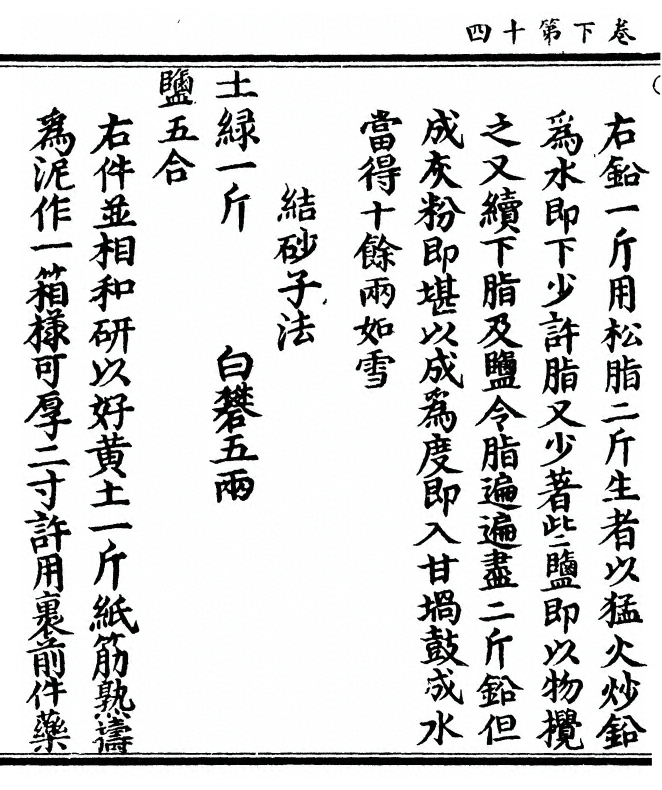 卷下第十四
右鉛一斤用松脂二斤生者以猛火炒鉛
為水即下少許脂又少著些鹽即以物攪
之又續下脂及鹽令脂遍遍盡二斤鉛但
成灰粉即堪以成為度即入甘堝鼓成水
當得十餘兩如雪
結砂子法
土綠一斤 白礬五兩
鹽五合
右件並相和研以好黃土一斤紙筋熟擣
為泥作一箱樣可厚二寸許用裹前件藥